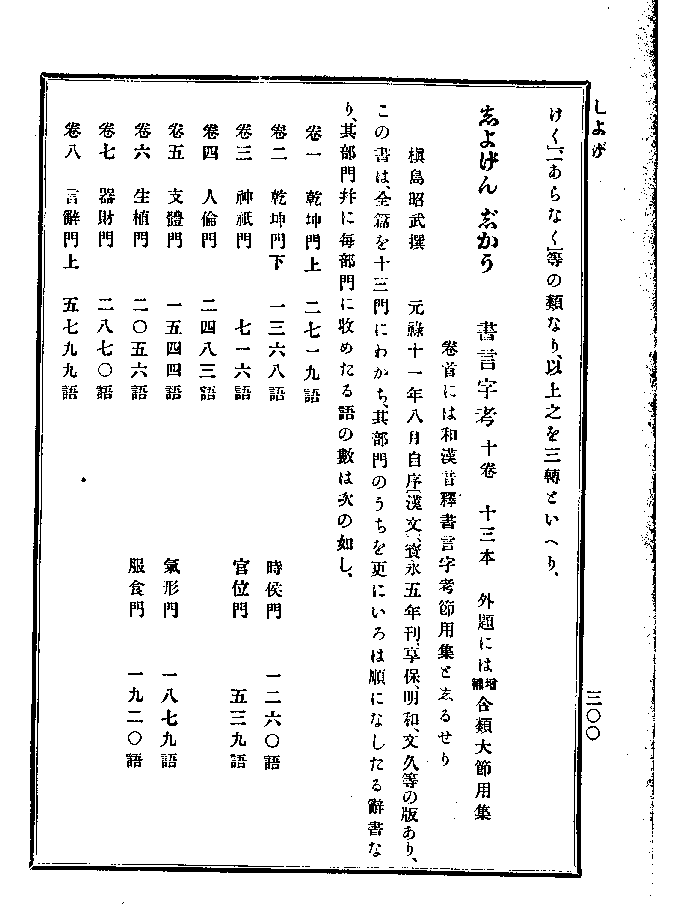 しよが
三〇〇
けく」「あらなく」等の類なり、以上之を三轉といへり、
志よげん じかう　書言字考 十卷　十三本　外題には增補合類大節用集
卷首には和漢音釋書言字考節用集と志るせり
槇島昭武撰　元祿十一年八月自序(漢文)、寶永五年刊、享保、明和、文久等の版あり、
この書は、全篇を十三門にわかち、其部門のうちを更にいろは順になしたる辭書な
り、其部門幷に每部門に收めたる語の數は次の如し、
卷一　乾坤門上　二七一九語
卷二　乾坤門下　一三六八語　時侯門　一二六〇語
卷三　神祇門　七一六語　官位門　五三九語
卷四　人倫門　二四八三語
卷五　支體門　一五四四語　氣形門　一八七九語
卷六　生植門　二〇五六語　服食門　一九二〇語
卷七　器財門　二八七〇語
卷八　言辭門上　五七九九語